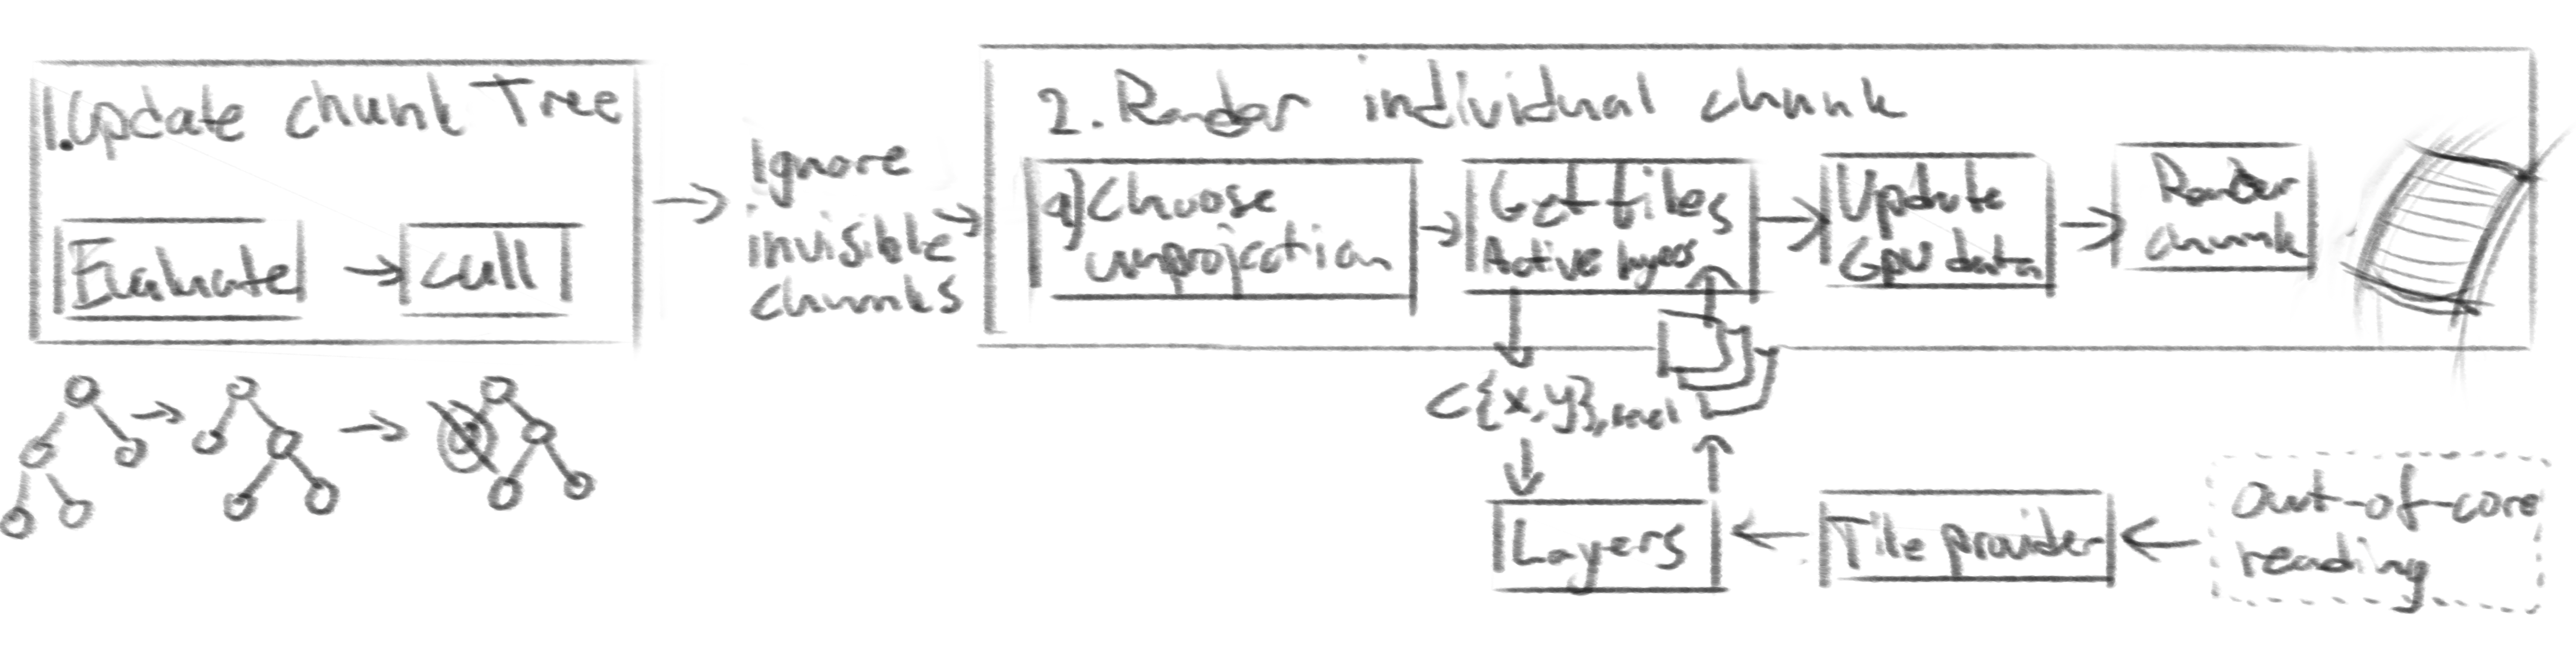 1. Update chunk Tree
Evaluate
cull
Ignore
invisible
chunks
2. Render individual chunk
a) Choose
unprojection
Get tiles
Active layers
Update
GPU data
Render
chunk
C{x,y}, level
Layers
Tile provider
Out-of-core
reading